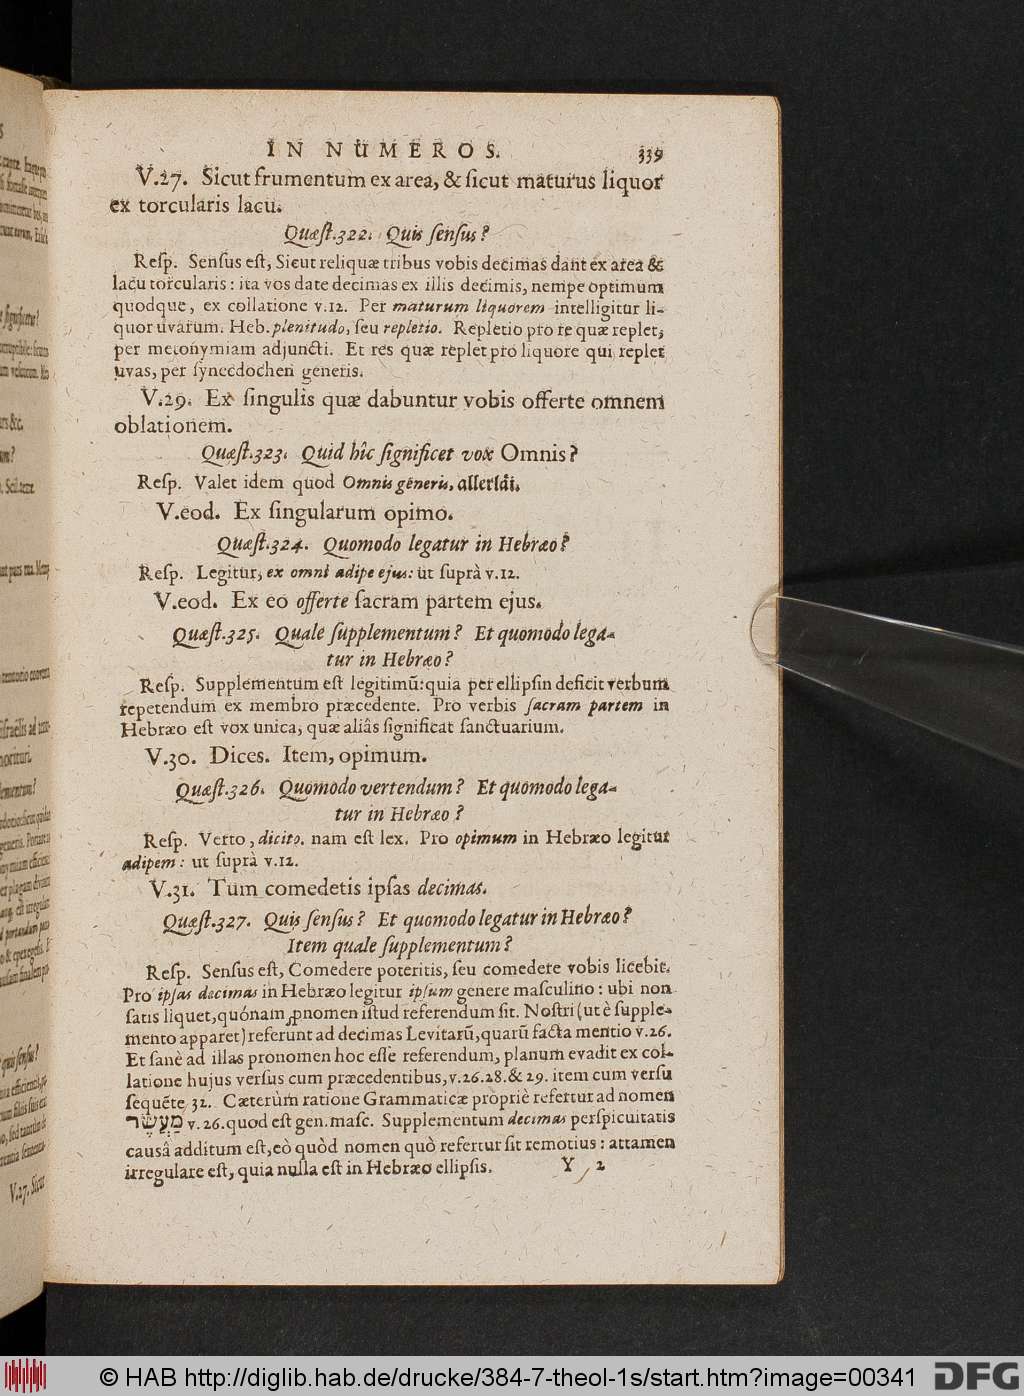 IN NUMEROS. 339
V.27. Sicut frumentum ex area, & ſicut maturus liquor
ex torcularis lacu.
Quæſt.322. Quis ſenſus?
Reſp. Senſus eſt, Sicut reliquæ tribus vobis decimas dant ex area &
lacu torcularis: ita vos date decimas ex illis decimis, nempe optimum
quodque, ex collatione v.12. Per maturum liquorem intelligitur li-
quor uvarum. Heb. plenitudo, ſeu repletio. Repletio pro re quæ replet,
per metonymiam adjuncti. Et res quæ replet pro liquore qui replet
uvas, per ſynecdochen generis.
V.29. Ex ſingulis quæ dabuntur vobis offerte omnem
oblationem.
Quæſt.323. Quid hîc ſignificet vox Omnis?
Reſp. Valet idem quod Omnis generis, allerlei.
V.eod. Ex ſingularum opimo.
Quæſt.324. Quomodo legatur in Hebræo?
Reſp. Legitur, ex omni adipe ejus: ut ſuprà v.12.
V.eod. Ex eo offerte ſacram partem ejus.
Quæſt.325. Quale ſupplementum? Et quomodo lega-
tur in Hebræo?
Reſp. Supplementum eſt legitimū: quia per ellipſin deficit verbum
repetendum ex membro præcedente. Pro verbis ſacram partem in
Hebræo eſt vox unica, quæ aliâs ſignificat ſanctuarium.
V.30. Dices. Item, opimum.
Quæſt.326. Quomodo vertendum? Et quomodo lega-
tur in Hebræo?
Reſp. Verto, dicito. nam eſt lex. Pro opimum in Hebræo legitur
adipem: ut ſuprà v.12.
V.31. Tum comedetis ipſas decimas.
Quæſt.327. Quis ſenſus? Et quomodo legatur in Hebræo?
Item quale ſupplementum?
Reſp. Senſus eſt, Comedere poteritis, ſeu comedere vobis licebit.
Pro ipſas decimas in Hebræo legitur ipſum genere maſculino: ubi non
ſatis liquet, quónam ꝓnomen iſtud referendum ſit. Noſtri (ut è ſupple-
mento apparet) referunt ad decimas Levitarū, quarū facta mentio v.26.
Et ſanè ad illas pronomen hoc eſſe referendum, planum evadit ex col-
latione hujus verſus cum præcedentibus, v.26.28.& 29. item cum verſu
ſequēte 32. Cæterùm ratione Grammaticæ propriè refertur ad nomen
מַעֲשֵׂר v.26. quod eſt gen. maſc. Supplementum decimas perſpicuitatis
causâ additum eſt, eò quòd nomen quò refertur ſit remotius: attamen
irregulare eſt, quia nulla eſt in Hebræo ellipſis. Y 2
© HAB http://diglib.hab.de/drucke/384-7-theol-1s/start.htm?image=00341
DFG